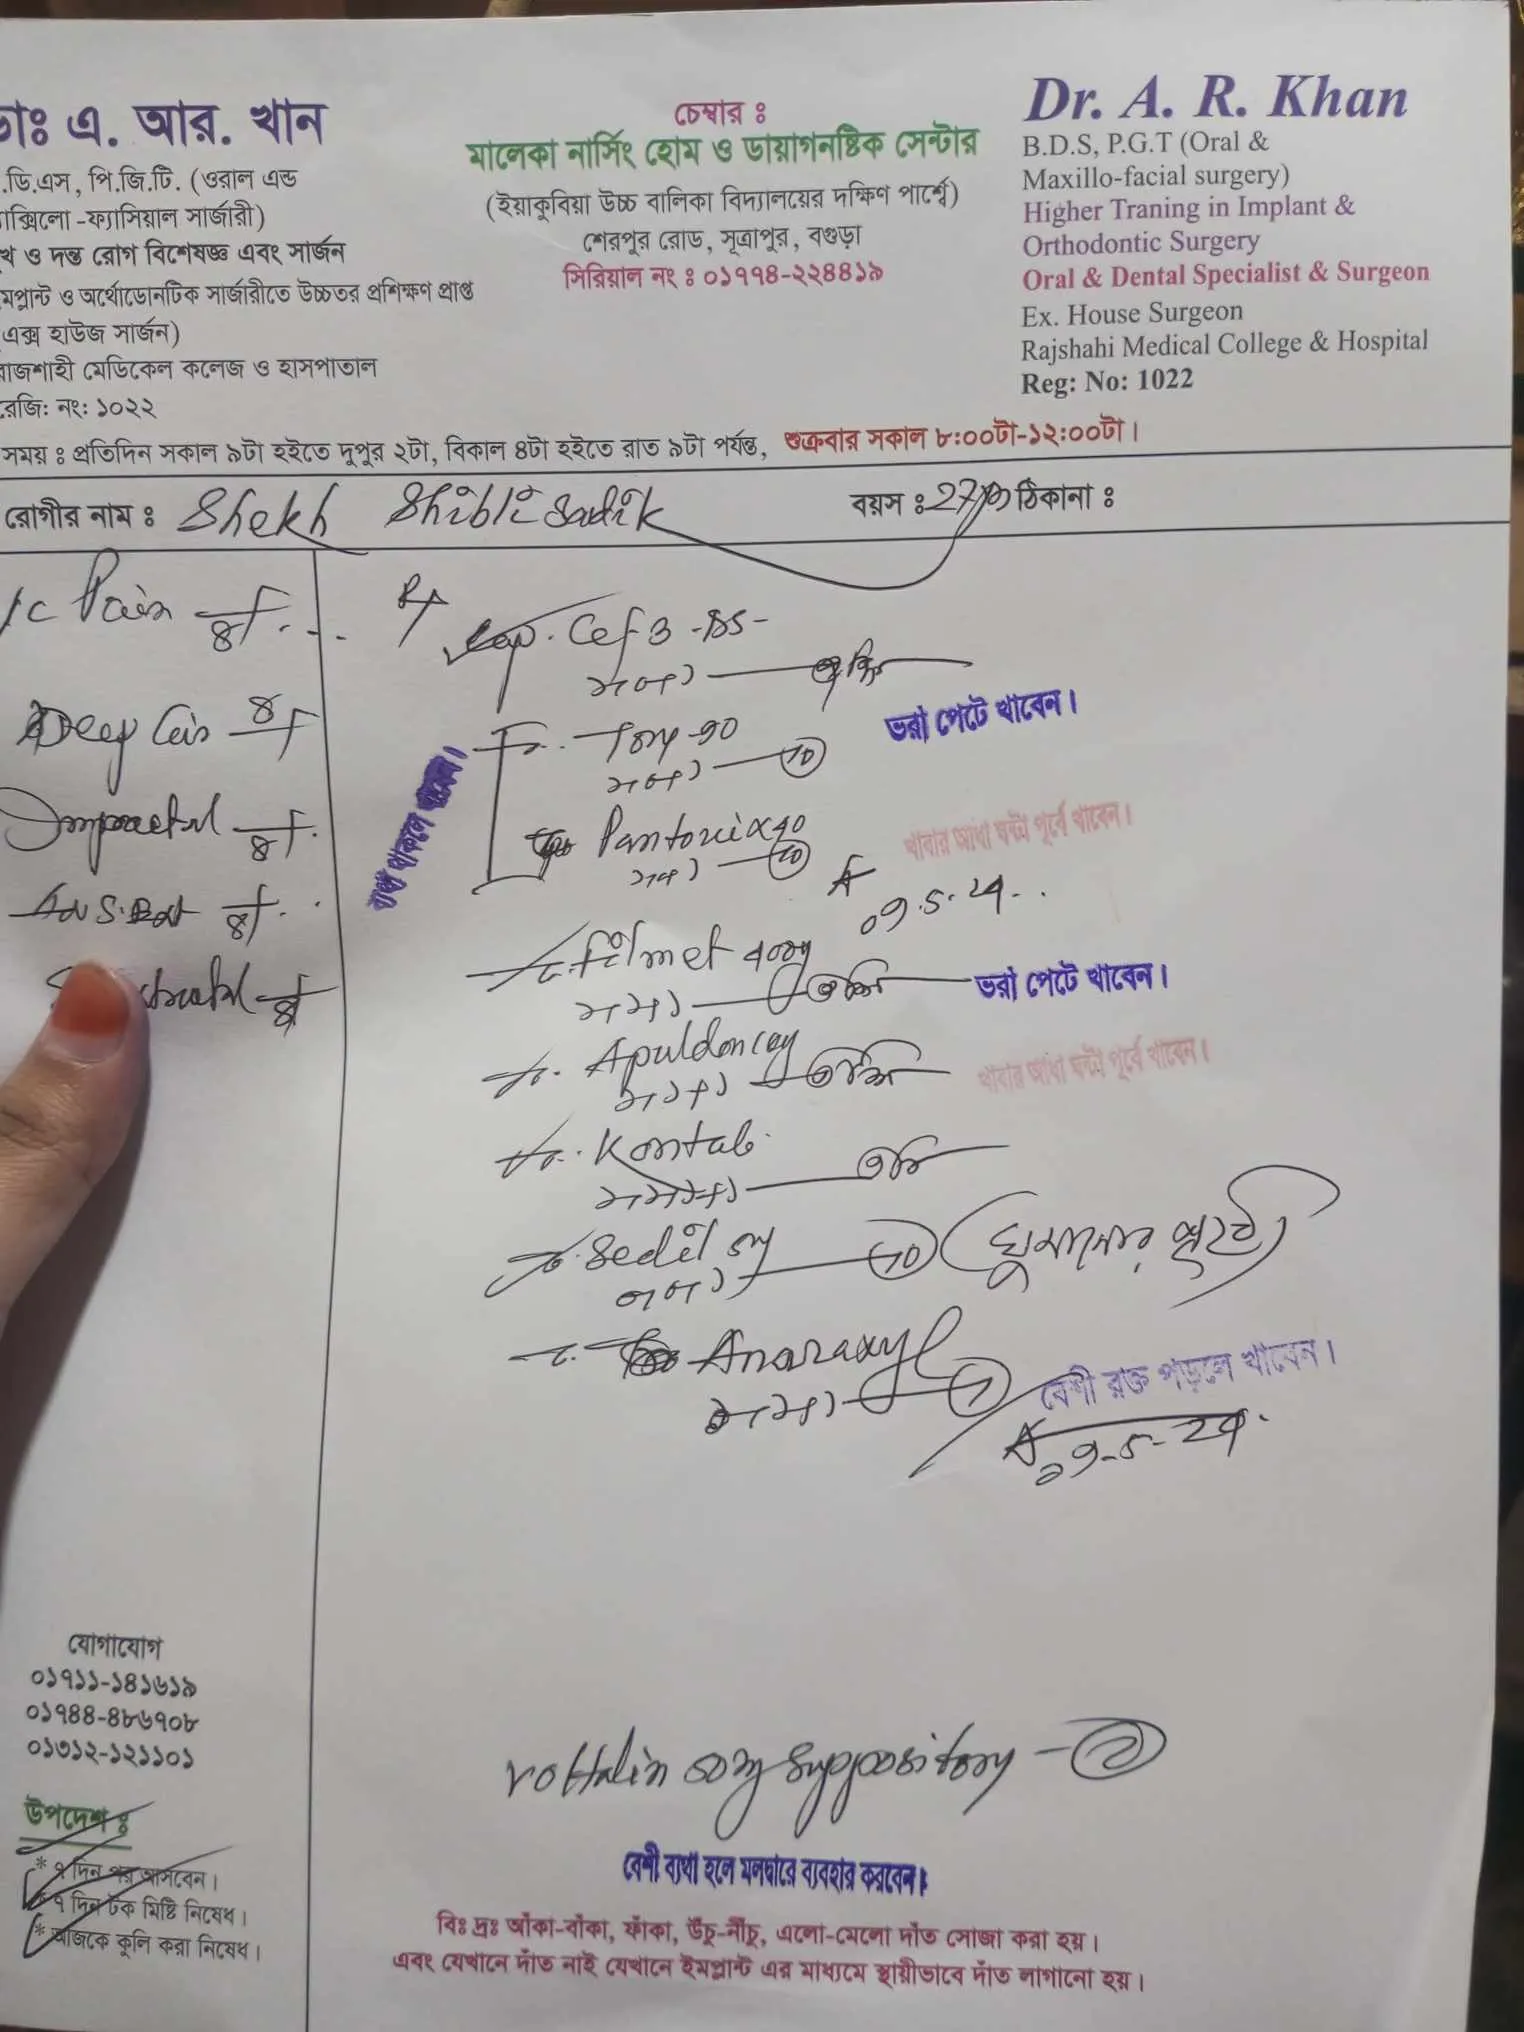 ডাঃ এ. আর. খান
.ডি.এস, পি.জি.টি. (ওরাল এন্ড
াক্সিলো -ফ্যাসিয়াল সার্জারী)
খ ও দন্ত রোগ বিশেষজ্ঞ এবং সার্জন
মপ্লান্ট ও অর্থোডোনটিক সার্জারীতে উচ্চতর প্রশিক্ষণ প্রাপ্ত
এক্স হাউজ সার্জন)
রাজশাহী মেডিকেল কলেজ ও হাসপাতাল
রেজি: নং: ১০২২
চেম্বার ঃ
মালেকা নার্সিং হোম ও ডায়াগনষ্টিক সেন্টার
(ইয়াকুবিয়া উচ্চ বালিকা বিদ্যালয়ের দক্ষিণ পার্শ্বে)
শেরপুর রোড, সূত্রাপুর, বগুড়া
সিরিয়াল নং ঃ ০১৭৭৪-২২৪৪১৯
Dr. A. R. Khan
B.D.S, P.G.T (Oral &
Maxillo-facial surgery)
Higher Traning in Implant &
Orthodontic Surgery
Oral & Dental Specialist & Surgeon
Ex. House Surgeon
Rajshahi Medical College & Hospital
Reg: No: 1022
সময় ঃ প্রতিদিন সকাল ৯টা হইতে দুপুর ২টা, বিকাল ৪টা হইতে রাত ৯টা পর্যন্ত, শুক্রবার সকাল ৮:০০টা-১২:০০টা।
রোগীর নাম ঃ Shekh Shibli Sadik বয়স ঃ 27 ঠিকানা ঃ
Pain 8
Deep 8
Impacted 8
8
8
Rx
Cap. Cef-3 -DS-
Tory-90
10
ভরা পেটে খাবেন।
ব্যথা থাকলে খাবেন।
Pantonix 40
10
খাবার আধা ঘন্টা পূর্বে খাবেন।
Filmet 400mg
ভরা পেটে খাবেন।
খাবার আধা ঘন্টা পূর্বে খাবেন।
Kontab
Sedil 5mg
10 (ঘুমানোর পূর্বে)
Anaraxyl
বেশী রক্ত পড়লে খাবেন।
যোগাযোগ
০১৭১১-১৪১৬১৯
০১৭৪৪-৪৮৬৭০৮
০১৩১২-১২১১০১
উপদেশ ঃ
* ৭ দিন পর আসবেন।
* ৭ দিন টক মিষ্টি নিষেধ।
* আজকে কুলি করা নিষেধ।
Voltalin 50mg suppository - 2
বেশী ব্যথা হলে মলদ্বারে ব্যবহার করবেন।
বিঃ দ্রঃ আঁকা-বাঁকা, ফাঁকা, উঁচু-নীঁচু, এলো-মেলো দাঁত সোজা করা হয়।
এবং যেখানে দাঁত নাই যেখানে ইমপ্লান্ট এর মাধ্যমে স্থায়ীভাবে দাঁত লাগানো হয়।